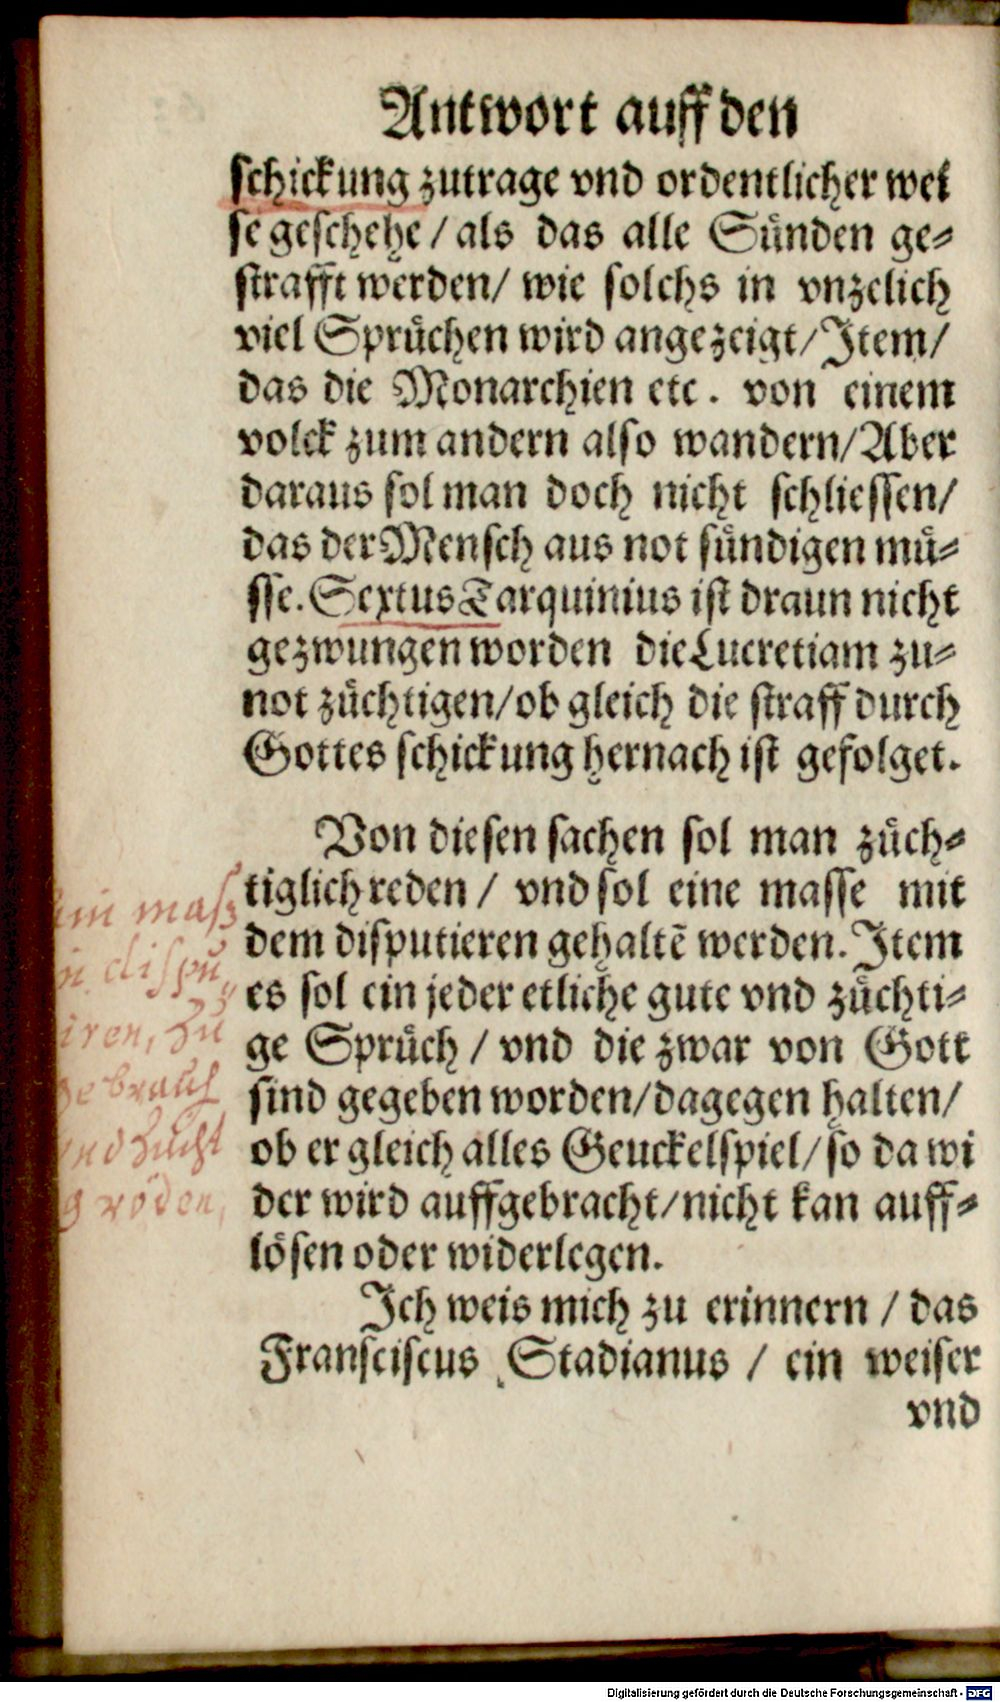 Antwort auff den
schickung zutrage vnd ordentlicher wei
se geschehe / als das alle Sünden ge-
strafft werden / wie solchs in vnzelich
viel Sprüchen wird angezeigt / Item /
das die Monarchien etc. von einem
volck zum andern also wandern / Aber
daraus sol man doch nicht schliessen /
das der Mensch aus not sündigen mü-
sse. Sextus Tarquinius ist draun nicht
gezwungen worden die Lucretiam zu-
not züchtigen / ob gleich die straff durch
Gottes schickung hernach ist gefolget.
Von diesen sachen sol man züch-
tiglich reden / vnd sol eine masse mit
dem disputieren gehaltē werden. Item
es sol ein jeder etliche gute vnd züchti-
ge Sprüch / vnd die zwar von Gott
sind gegeben worden / dagegen halten /
ob er gleich alles Geuckelspiel / so da wi
der wird auffgebracht / nicht kan auff-
lösen oder widerlegen.
Ich weis mich zu erinnern / das
Fransciscus Stadianus / ein weiser
vnd
maß
dispu
iren, zu
gebrauch
vnd zucht
röden,
Digitalisierung gefördert durch die Deutsche Forschungsgemeinschaft - DFG